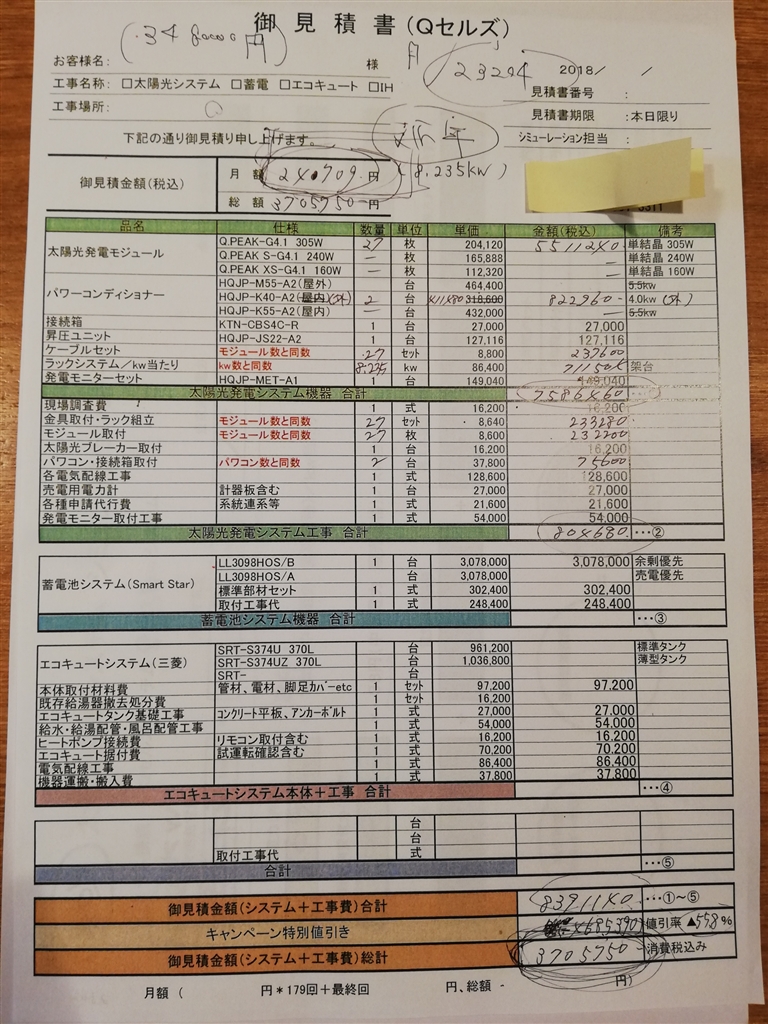 御 見 積 書 (Qセルズ)
お客様名: 様
23204 2018/ /
工事名称: □太陽光システム □蓄電 □エコキュート □IH
見積書番号 :
工事場所:
見積書期限 :本日限り
下記の通り御見積り申し上げます。
シミュレーション担当 :
御見積金額(税込)
月 額 240709 円 (8.235kw)
総 額 3705750 円
品名 仕様 数量 単位 単価 金額(税込) 備考
太陽光発電モジュール Q.PEAK-G4.1 305W 27 枚 204,120 5511240 単結晶 305W
Q.PEAK S-G4.1 240W — 枚 165,888 — 単結晶 240W
Q.PEAK XS-G4.1 160W — 枚 112,320 — 単結晶 160W
パワーコンディショナー HQJP-M55-A2(屋外) 台 464,400 5.5kw
HQJP-K40-A2(屋内)(外) 2 台 411480 318,600 822960- 4.0kw (外)
HQJP-K55-A2(屋内) — 台 432,000 — 5.5kw
接続箱 KTN-CBS4C-R 1 台 27,000 27,000
昇圧ユニット HQJP-JS22-A2 1 台 127,116 127,116
ケーブルセット モジュール数と同数 27 セット 8,800 237600
ラックシステム/kw当たり kw数と同数 8.235 kw 86,400 711504 架台
発電モニターセット HQJP-MET-A1 1 台 149,040 149,040
太陽光発電システム機器 合計 7586460
現場調査費 1 式 16,200 16,200
金具取付・ラック組立 モジュール数と同数 27 セット 8,640 233280
モジュール取付 モジュール数と同数 27 枚 8,600 232200
太陽光ブレーカー取付 1 台 16,200 16,200
パワコン・接続箱取付 パワコン数と同数 2 台 37,800 75600
各電気配線工事 1 式 128,600 128,600
売電用電力計 計器板含む 1 台 27,000 27,000
各種申請代行費 系統連系等 1 式 21,600 21,600
発電モニター取付工事 1 式 54,000 54,000
太陽光発電システム工事 合計 804680 …②
蓄電池システム(Smart Star) LL3098HOS/B 1 台 3,078,000 3,078,000 余剰優先
LL3098HOS/A 台 3,078,000 売電優先
標準部材セット 1 式 302,400 302,400
取付工事代 1 式 248,400 248,400
蓄電池システム機器 合計 …③
エコキュートシステム(三菱) SRT-S374U 370L 台 961,200 標準タンク
SRT-S374UZ 370L 台 1,036,800 薄型タンク
SRT- 台
本体取付材料費 管材、電材、脚足カバーetc 1 セット 97,200 97,200
既存給湯器撤去処分費 1 セット 16,200
エコキュートタンク基礎工事 コンクリート平板、アンカーボルト 1 式 27,000 27,000
給水・給湯配管・風呂配管工事 1 式 54,000 54,000
ヒートポンプ接続費 リモコン取付含む 1 式 16,200 16,200
エコキュート据付費 試運転確認含む 1 式 70,200 70,200
電気配線工事 1 式 86,400 86,400
機器運搬・搬入費 1 式 37,800 37,800
エコキュートシステム本体+工事 合計 …④
台
台
取付工事代 式
合計 …⑤
御見積金額(システム+工事費)合計 8391140 …①~⑤
キャンペーン特別値引き 4685390 値引率 ▲55.8%
御見積金額(システム+工事費)総計 3705750 消費税込み
月額 ( 円*179回+最終回 円、総額 円)